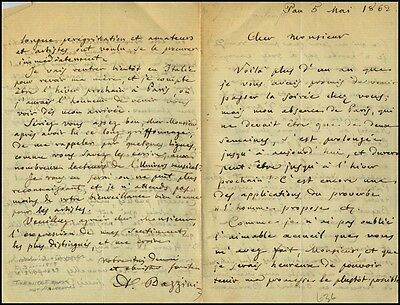 Pau 5 Mai 1862
Cher Monsieur
Voilà plus d'un an que
je vous avais promis de venir
passer la soirée chez vous;
mais mon absence de Paris, qui
ne devait être que de deux
semaines, s'est prolongée
jusqu'à aujourd'hui, et durera
peut être jusqu'à l'hiver
prochain! C'est encore une
des applications du proverbe
"l'homme propose etc.
Comme je n'ai pas oublié
l'aimable accueil que vous
m'avez fait, Monsieur, et que
je serais heureux de pouvoir
tenir ma promesse le plustôt possible
longue pérégrination et amateurs
et artistes ont voulu se le procurer
immédiatement.
Je vais rentrer bientôt en Italie
pour revoir ma mère, et je compte
être l'hiver prochain à Paris, où
j'aurai l'honneur de venir vous
voir dès mon arrivée.
Seriez vous assez bon, cher Monsieur
après avoir lu ce long griffonnage,
de me rappeler par quelques lignes,
comme vous savez les écrire, aux
nombreux lecteurs de l'Univers musical.
Je vous en serai on ne peut plus
reconnaissant, et je n'attends pas
moins de votre bienveillance bien connue
pour les artistes.
Veuillez agréer cher Monsieur
l'expression de mes sentiments
les plus distingués, et me croire
votre très dévoué
et
A. Bazzini